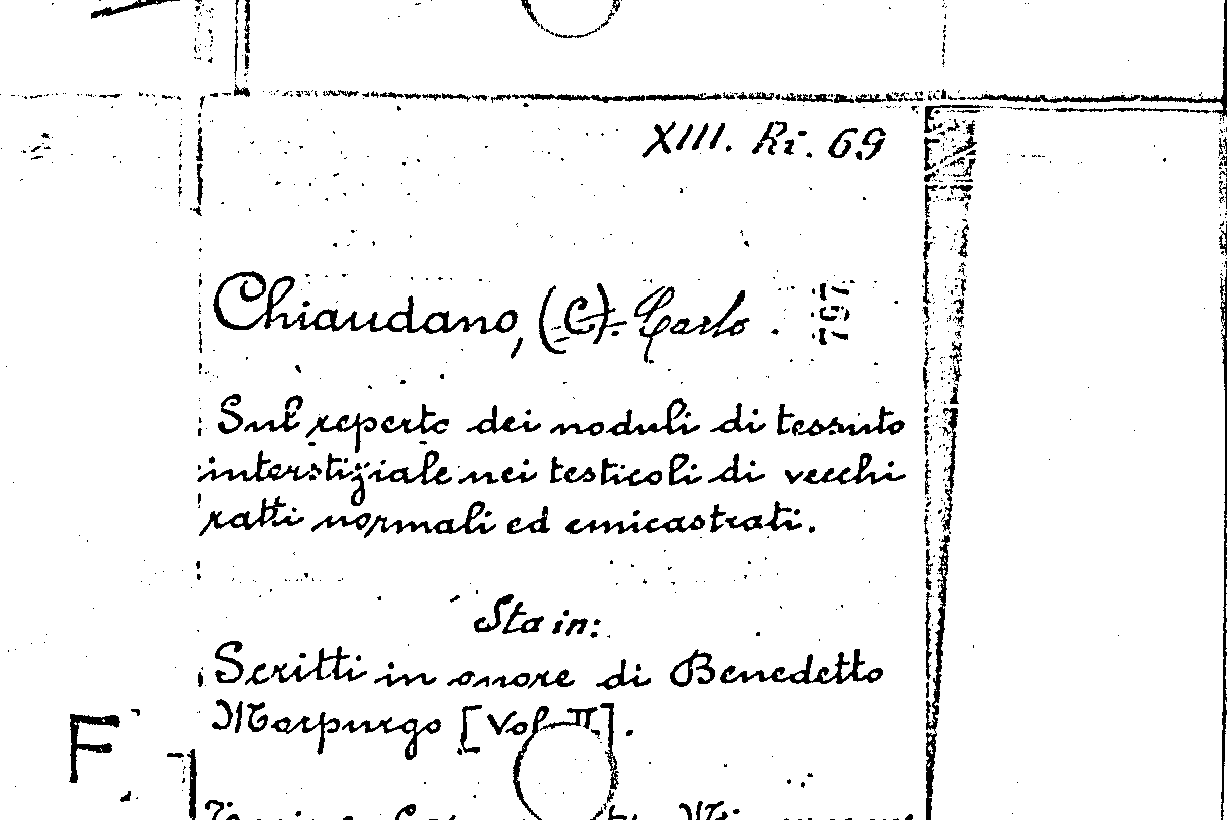 XIII. Ri. 69
Chiaudano, (C). Carlo.
797
Sul reperto dei noduli di tessuto
interstiziale nei testicoli di vecchi
ratti normali ed emicastrati.
Sta in:
Scritti in onore di Benedetto
Morpurgo [Vol. II].
F